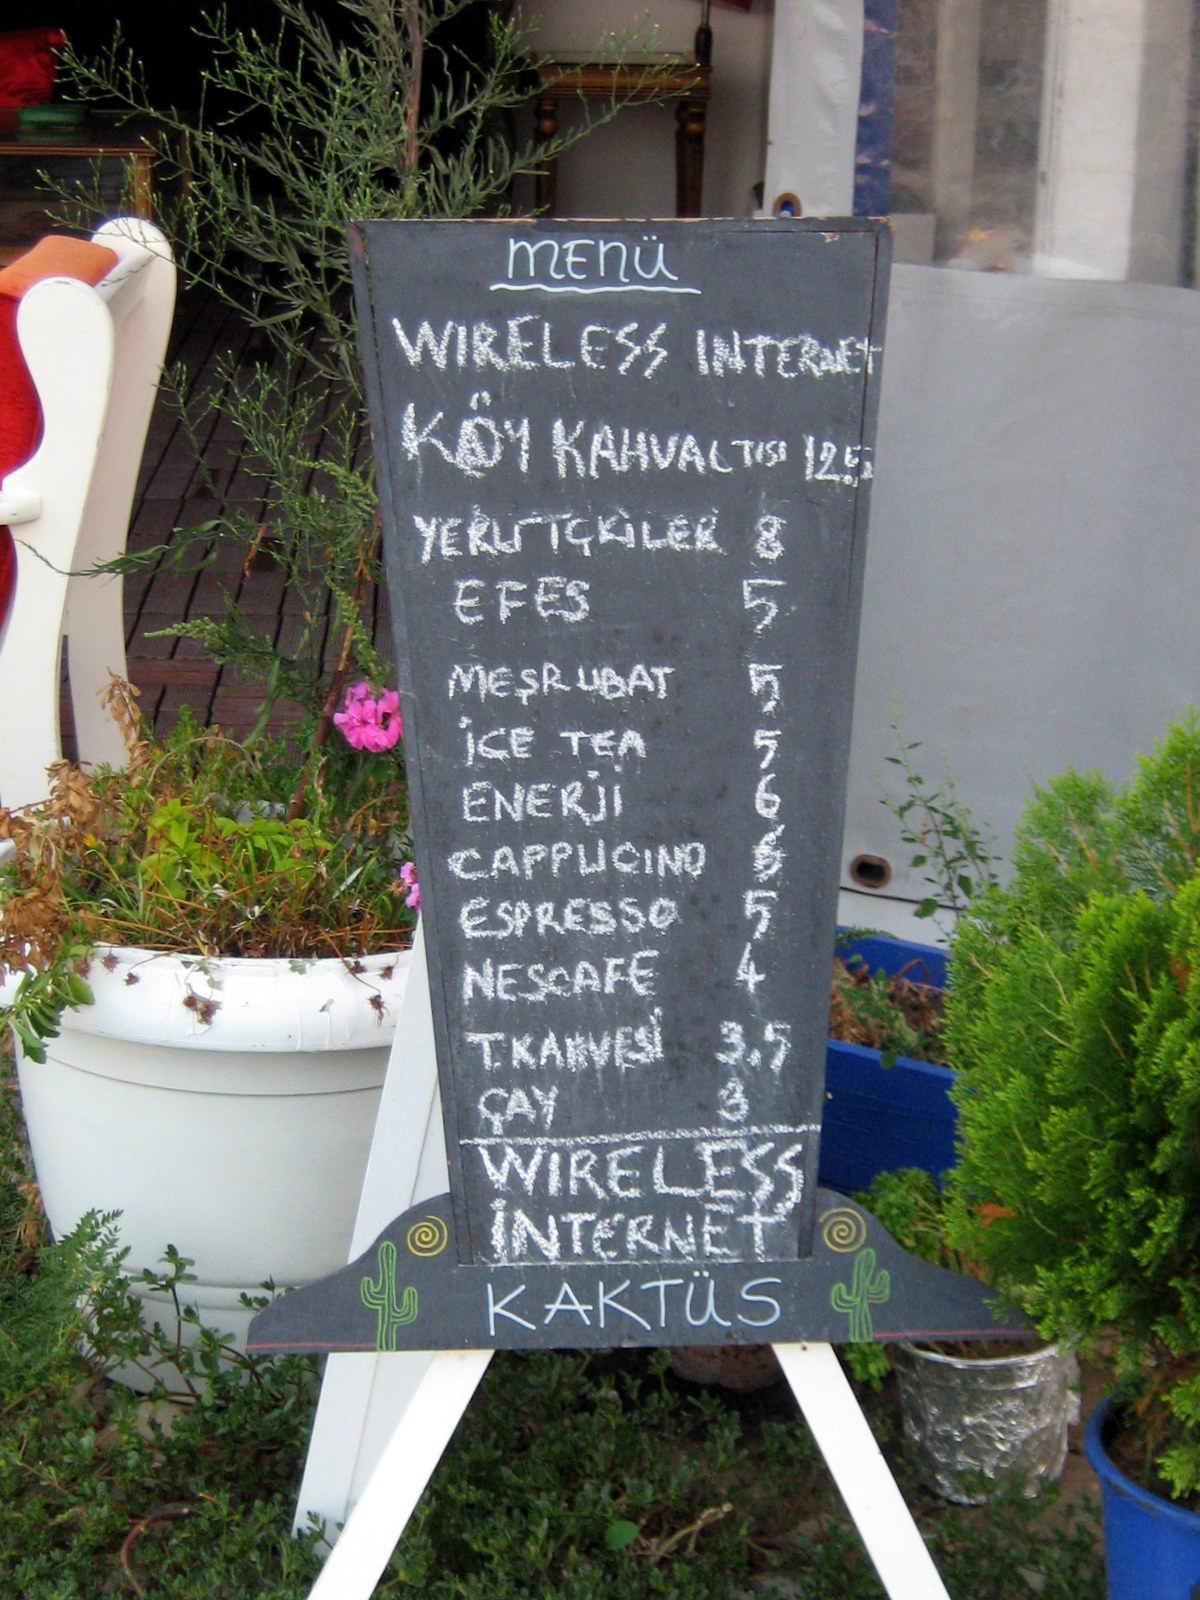 MENÜ
WIRELESS INTERNET
KÖY KAHVALTISI 12.5
YERLİ İÇKİLER 8
EFES 5
MEŞRUBAT 5
İCE TEA 5
ENERJİ 6
CAPPUCINO
ESPRESSO 5
NESCAFE 4
T.KAHVESİ 3.5
ÇAY 3
WIRELESS
İNTERNET
KAKTÜS